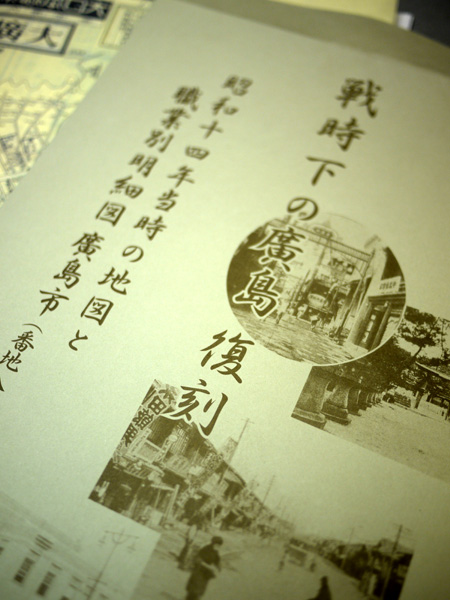 戦時下の廣島
復刻
昭和十四年当時の地図と
職業別明細図 廣島市(番地入
大廣